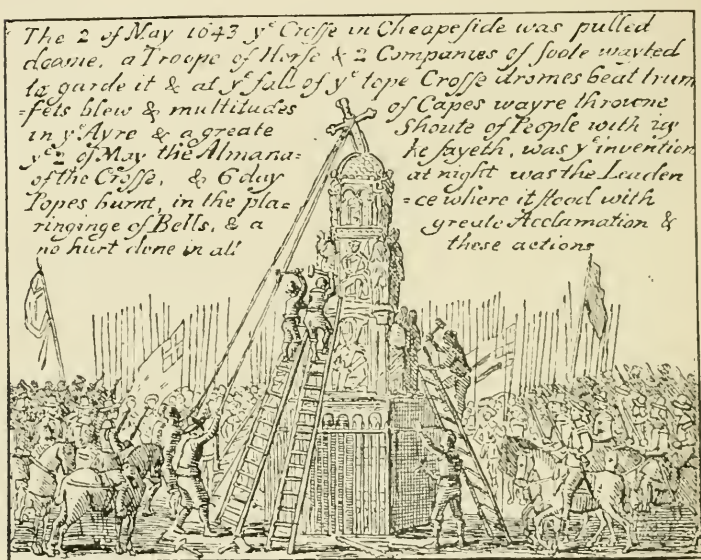 The 2 of May 1643 yᵉ Crosse in Cheapeside was pulled
downe, a Troope of Horse & 2 Companies of foote wayted
to garde it & at yᵉ fall of yᵉ tope Crosse dromes beat trum
=pets blew & multitudes of Capes wayre throwne
in yᵉ Ayre & a greate Shoute of People with ioy
yᵉ 2 of May the Almana= ke sayeth, was yᵉ invention
of the Crosse, & 6 day at night was the Leaden
Popes burnt, in the pla= =ce where it stood with
ringinge of Bells, & a greate Acclamation &
no hurt done in all these actions